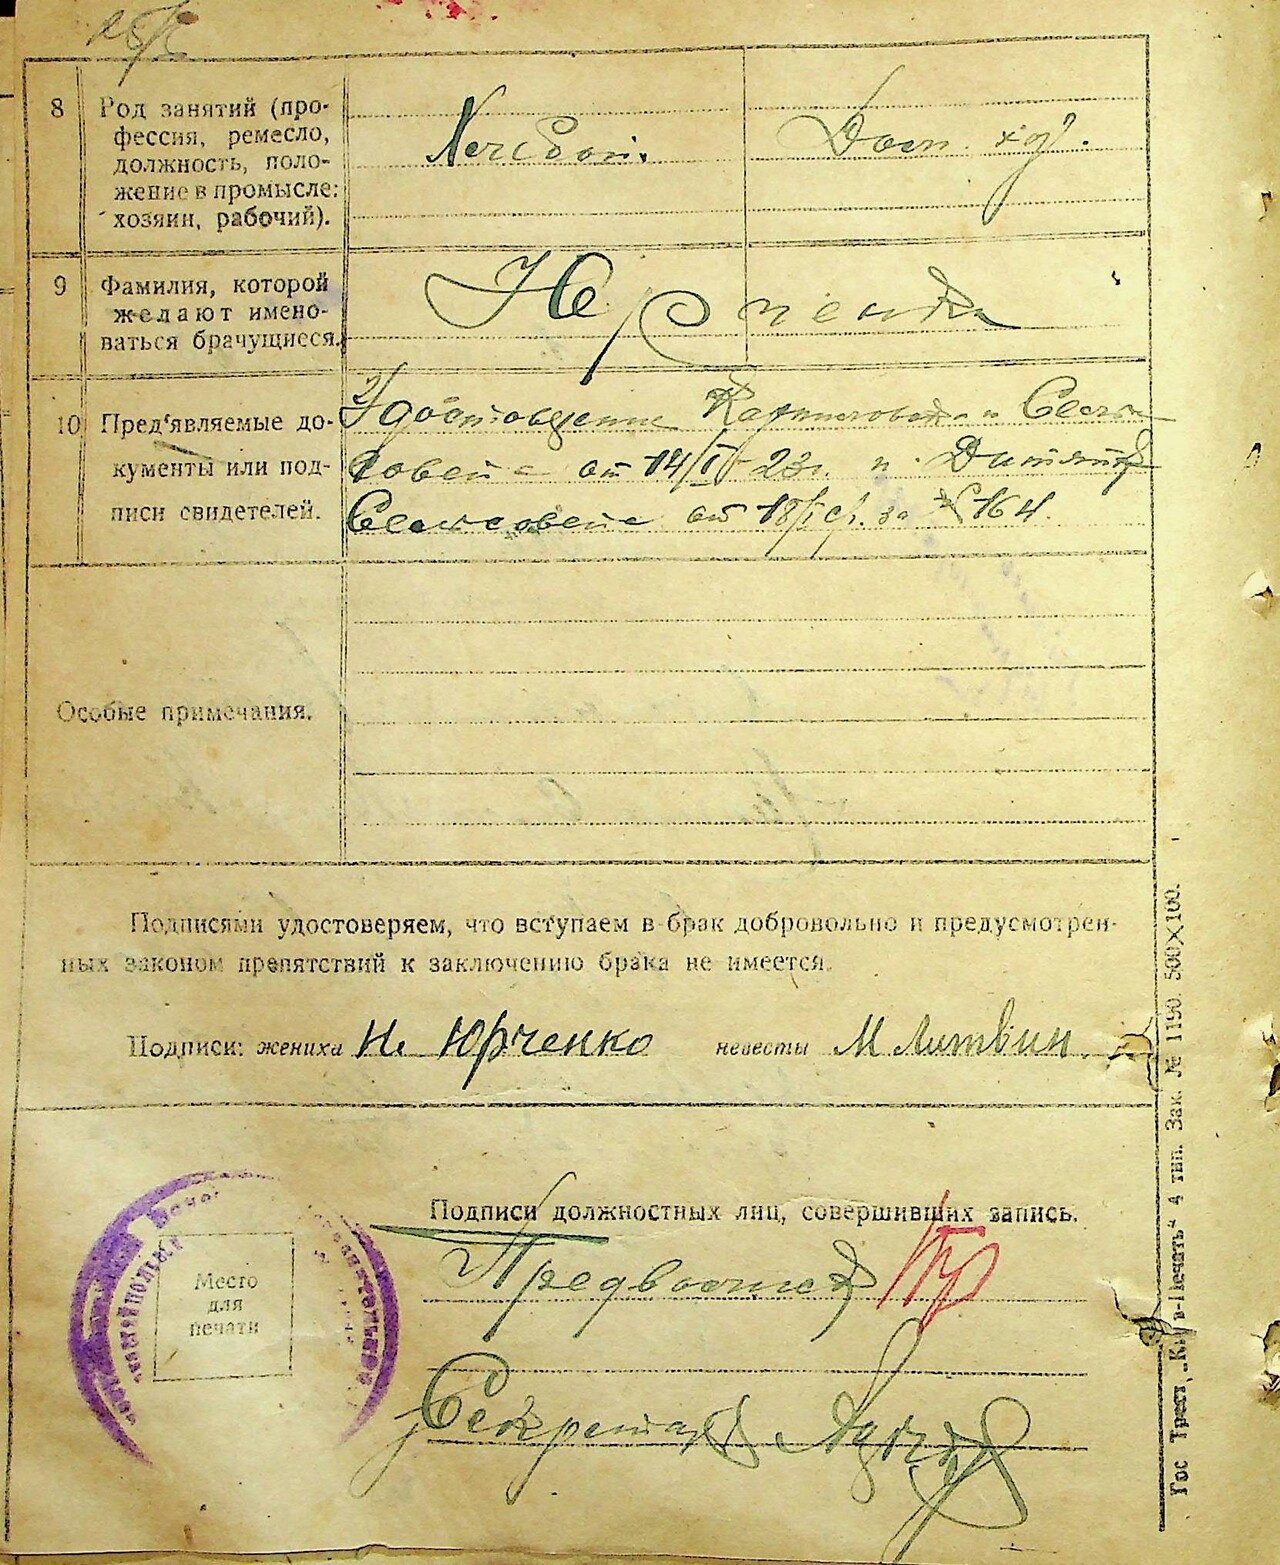 8 Род занятий (про-
фессия, ремесло,
должность, поло-
жение в промысле:
хозяин, рабочий).
Дом. хоз.
9 Фамилия, которой
желают имено-
ваться брачущиеся.
Юрченко
10 Пред'являемые до-
кументы или под-
писи свидетелей.
Удостоверение Сель
совета от 14/IV-23г. и
Сельсовета от 18/I с/г. за № 164.
Особые примечания.
Подписями удостоверяем, что вступаем в брак добровольно и предусмотрен-
ных законом препятствий к заключению брака не имеется.
Подписи: жениха И. Юрченко невесты М Литвин.
Подписи должностных лиц, совершивших запись.
Место
для
печати
Секретарь
Гос Трест, „Киев-Печать“ 4 тип. Зак. № 1190. 500×100.